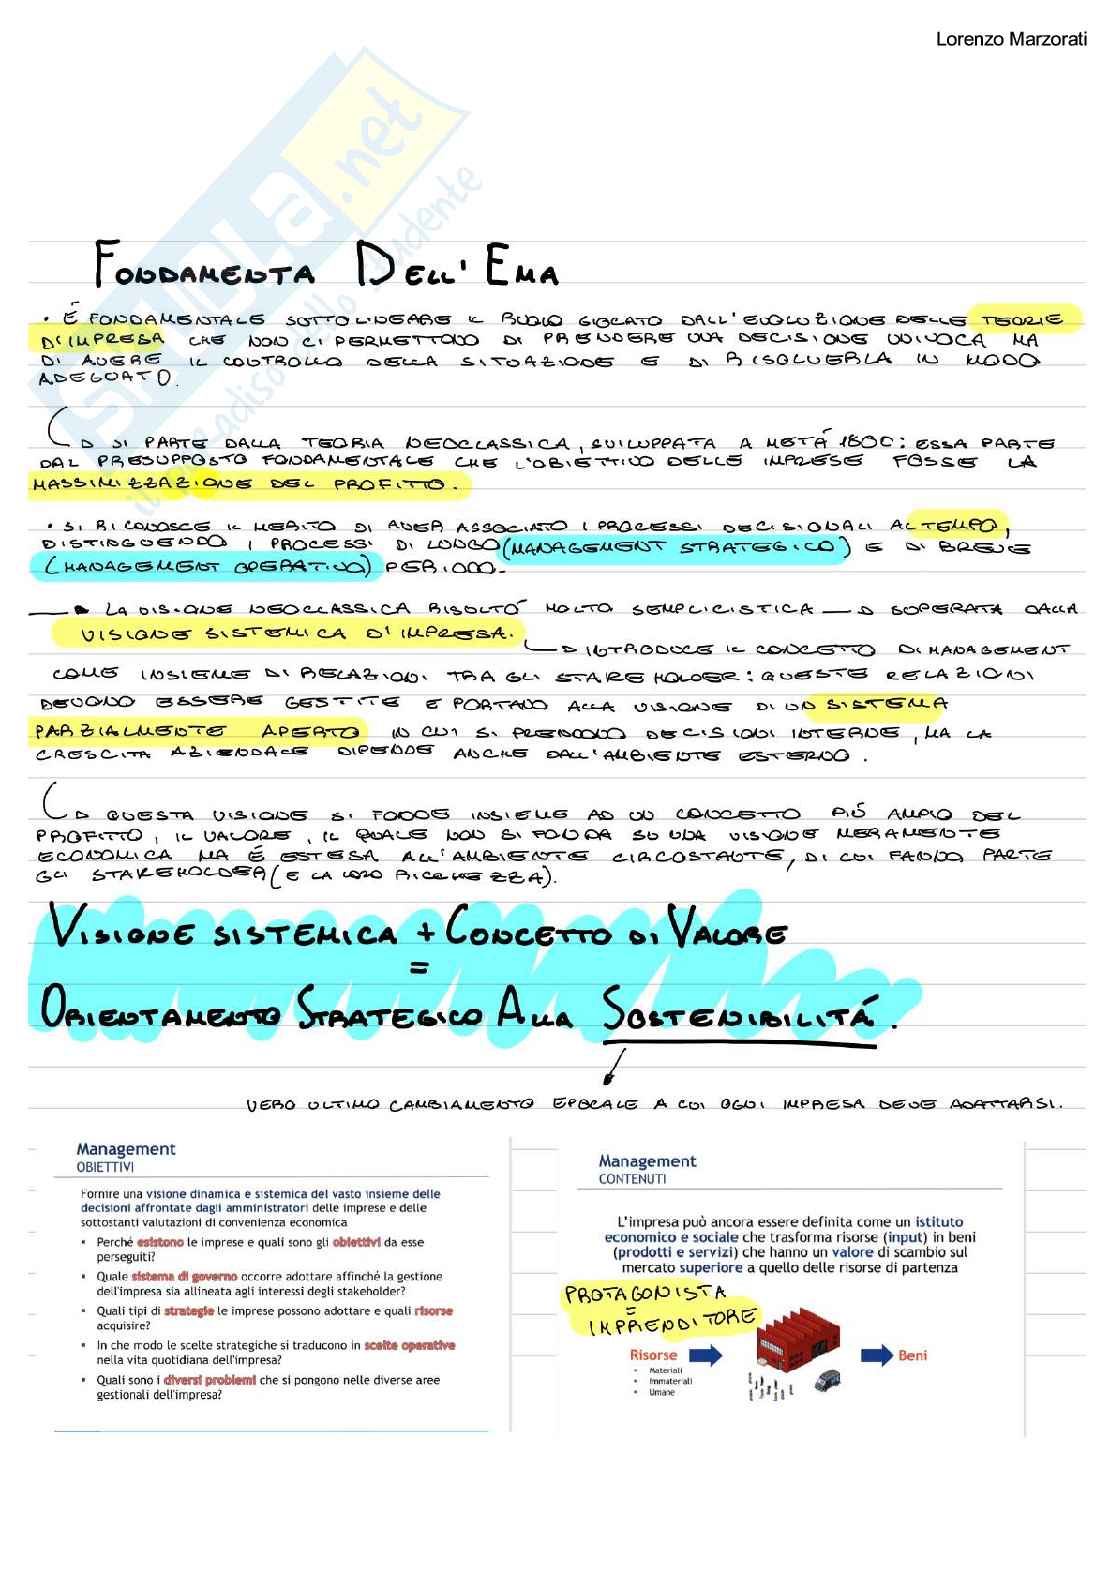 Lorenzo Marzorati
SKUOLA.net
il paradiso dello studente
FONDAMENTA DELL'EMA
• É FONDAMENTALE SOTTOLINEARE IL RUOLO GIOCATO DALL'EVOLUZIONE DELLE TEORIE
D'IMPRESA CHE NON CI PERMETTONO DI PRENDERE UNA DECISIONE UNIVOCA MA
DI AVERE IL CONTROLLO DELLA SITUAZIONE E DI RISOLVERLA IN MODO
ADEGUATO.
SI PARTE DALLA TEORIA NEOCLASSICA, SVILUPPATA A METÁ 1800: ESSA PARTE
DAL PRESUPPOSTO FONDAMENTALE CHE L'OBIETTIVO DELLE IMPRESE FOSSE LA
MASSIMIZZAZIONE DEL PROFITTO.
• SI RICONOSCE IL MERITO DI AVER ASSOCIATO I PROCESSI DECISIONALI AL TEMPO,
DISTINGUENDO I PROCESSI DI LUNGO (MANAGEMENT STRATEGICO) E DI BREVE
(MANAGEMENT OPERATIVO) PERIODO.
LA VISIONE NEOCLASSICA RISULTÓ MOLTO SEMPLICISTICA SUPERATA DALLA
VISIONE SISTEMICA D'IMPRESA.
INTRODUCE IL CONCETTO DI MANAGEMENT
COME INSIEME DI RELAZIONI TRA GLI STAKEHOLDER: QUESTE RELAZIONI
DEVONO ESSERE GESTITE E PORTANO ALLA VISIONE DI UN SISTEMA
PARZIALMENTE APERTO IN CUI SI PRENDONO DECISIONI INTERNE, MA LA
CRESCITA AZIENDALE DIPENDE ANCHE DALL'AMBIENTE ESTERNO.
QUESTA VISIONE SI FONDE INSIEME AD UN CONCETTO PIÚ AMPIO DEL
PROFITTO, IL VALORE, IL QUALE NON SI FONDA SU UNA VISIONE MERAMENTE
ECONOMICA MA É ESTESA ALL'AMBIENTE CIRCOSTANTE, DI CUI FANNO PARTE
GLI STAKEHOLDER (E LA LORO RICCHEZZA).
VISIONE SISTEMICA + CONCETTO DI VALORE
=
ORIENTAMENTO STRATEGICO ALLA SOSTENIBILITÁ.
VERO ULTIMO CAMBIAMENTO EPOCALE A CUI OGNI IMPRESA DEVE ADATTARSI.
Management
OBIETTIVI
Fornire una visione dinamica e sistemica del vasto insieme delle
decisioni affrontate dagli amministratori delle imprese e delle
sottostanti valutazioni di convenienza economica
• Perché esistono le imprese e quali sono gli obiettivi da esse
perseguiti?
• Quale sistema di governo occorre adottare affinché la gestione
dell'impresa sia allineata agli interessi degli stakeholder?
• Quali tipi di strategie le imprese possono adottare e quali risorse
acquisire?
• In che modo le scelte strategiche si traducono in scelte operative
nella vita quotidiana dell'impresa?
• Quali sono i diversi problemi che si pongono nelle diverse aree
gestionali dell'impresa?
Management
CONTENUTI
L'impresa può ancora essere definita come un istituto
economico e sociale che trasforma risorse (input) in beni
(prodotti e servizi) che hanno un valore di scambio sul
mercato superiore a quello delle risorse di partenza
PROTAGONISTA
=
IMPRENDITORE
Risorse
• Materiali
• Immateriali
• Umane
Beni